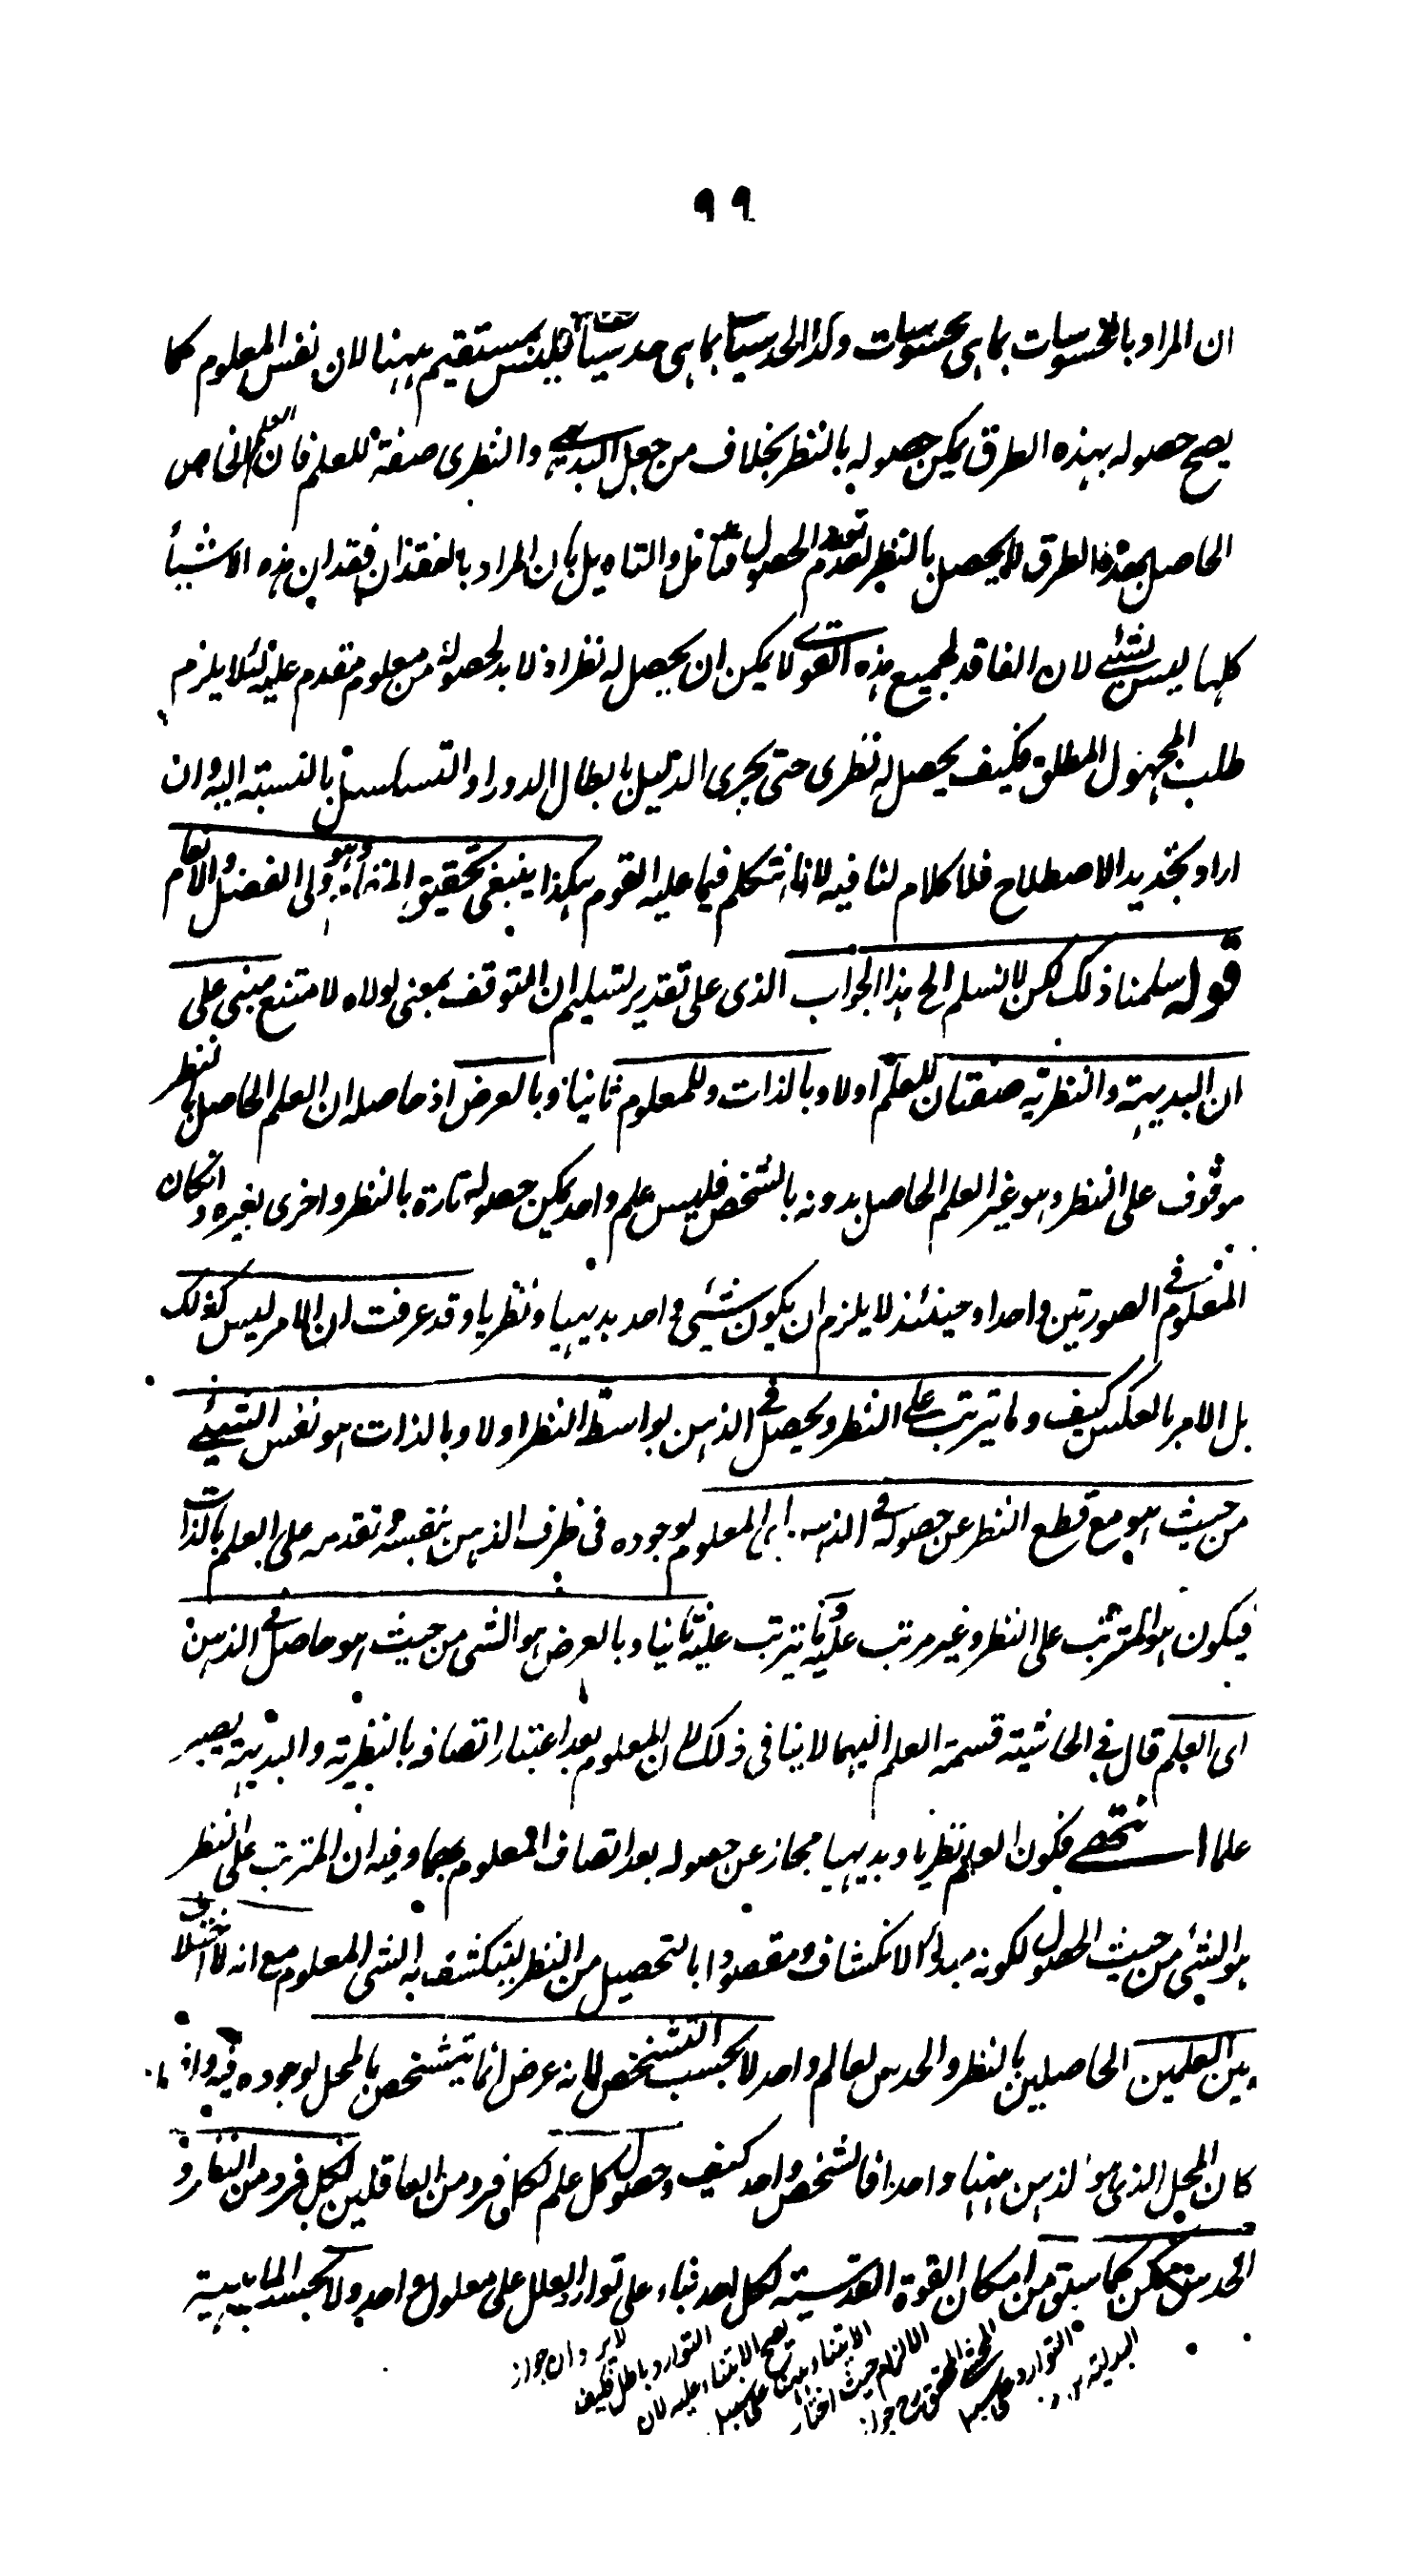 ٩٩
ان المراد بالمحسوسات بما هى محسوسات وكذا الحدسيات بما هى حدسيات فليس بمستقيم ههنا لان نفس المعلوم كما
يصح حصوله بهذه الطرق يمكن حصوله بالنظر بخلاف من جعل البديهى والنظرى صفة للعلم فان العلم الخاص
الحاصل بهذه الطرق لا يحصل بالنظر لعدم تعدد الحصول فتأمل والتاويل بان المراد بالفقدان فقدان هذه الاشياء
كلها ليس بشئ لان الفاقد لجميع هذه القوى لا يمكن ان يحصل له نظر اذ لا بد لحصوله من معلوم مقدم عليه لئلا يلزم
طلب المجهول المطلق فكيف يحصل له نظرى حتى يجرى الدليل بابطال الدور او التسلسل بالنسبة اليه وان
اراد تجديد الاصطلاح فلا كلام لنا فيه لانا نتكلم فيما عليه القوم هكذا ينبغى تحقيق المقام وهو ولى الفضل والانعام
قوله سلمنا ذلك لكن لا نسلم الخ هذا الجواب الذى على تقدير تسليم ان المتوقف بمعنى لولاه لامتنع مبنى على
ان البديهة والنظرية صفتان للعلم اولا وبالذات وللمعلوم ثانيا وبالعرض اذ حاصله ان العلم الحاصل بالنظر
موقوف على النظر وهو غير العلم الحاصل بدونه بالشخص فليس علم واحد يمكن حصوله تارة بالنظر واخرى بغيره وان كان
المعلوم فى الصورتين واحدا وحينئذ لا يلزم ان يكون شئ واحد بديهيا ونظريا وقد عرفت ان الامر ليس كذلك
بل الامر بالعكس كيف وما يترتب على النظر ويحصل فى الذهن بواسطة النظر اولا وبالذات هو نفس الشئ
من حيث هو مع قطع النظر عن حصوله فى الذهن اى المعلوم لوجوده فى ظرف الذهن بنفسه وتقدمه على العلم بالذات
فيكون هو المترتب على النظر وغير مرتب عليه وما يترتب عليه ثانيا وبالعرض هو الشى من حيث هو حاصل فى الذهن
اى العلم قال فى الحاشية قسمة العلم اليهما لا ينافى ذلك لان المعلوم بعد اعتبار اتصافه بالنظرية والبديهة يصير
علما انتهى فكون العلم نظريا وبديهيا مجاز عن حصوله بعد اتصاف المعلوم بهما وفيه ان المترتب على النظر
هو الشئ من حيث الحصول لكونه مبدأ الانكشاف ومقصودا بالتحصيل من النظر لينكشف به الشى المعلوم مع انه لا اختلاف
بين العلمين الحاصلين بالنظر والحدس لعالم واحد لا بحسب التشخص لانه عرض انما يتشخص بالمحل لوجوده فيه واذا
كان المحل الذى هو الذهن ههنا واحدا فالشخص واحد كيف وحصول كل علم لكل فرد من العاقلين لكل فرد من النظر و
الحدس ممكن كما سبق من امكان القوة القدسية لكل احد بناء على توارد العلل على معلول واحد ولا بحسب الماهية
لا يرد ان جواز
التوارد باطل فكيف
يصح الابتناء عليه لان
الابتناء ههنا على سبيل
الالزام حيث اختار
المحشى المحقق رح جواز
التوارد على سبيل
البدلية